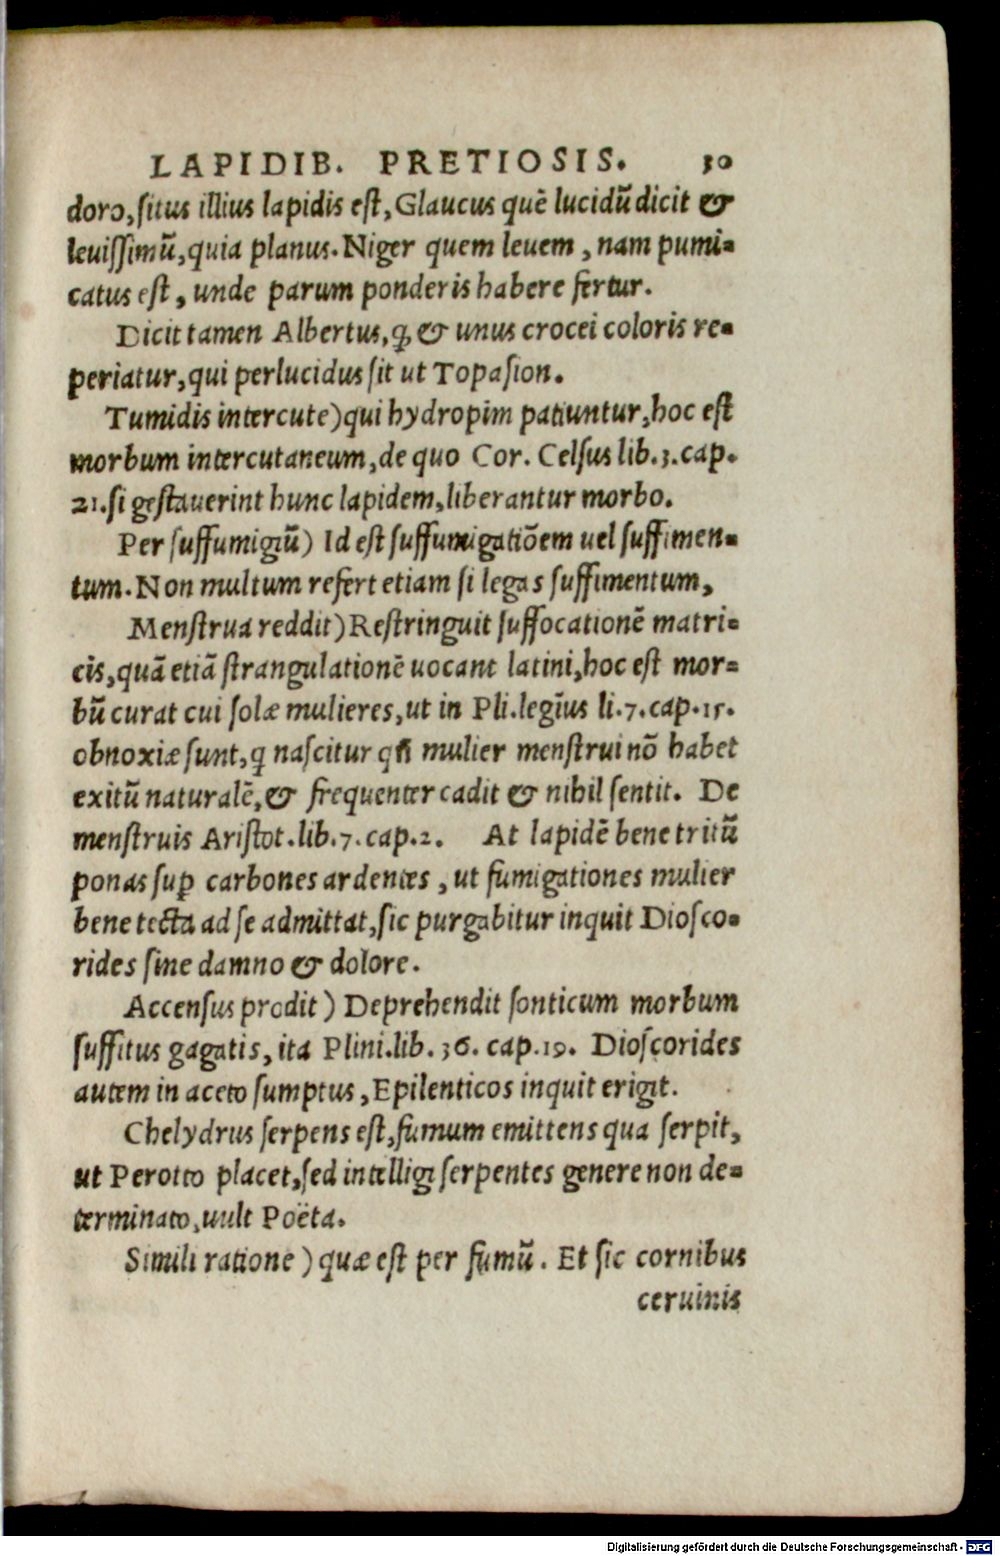 LAPIDIB. PRETIOSIS. 30
doro, ſitus illius lapidis eſt, Glaucus quē lucidū dicit &
leuiſſimū, quia planus. Niger quem leuem, nam pumi-
catus eſt, unde parum ponderis habere fertur.
Dicit tamen Albertus, ꝙ & unus crocei coloris re-
periatur, qui perlucidus ſit ut Topaſion.
Tumidis intercute) qui hydropim patiuntur, hoc eſt
morbum intercutaneum, de quo Cor. Celſus lib. 3. cap.
21. ſi geſtauerint hunc lapidem, liberantur morbo.
Per ſuffumigiū) Id eſt ſuffumigatiōem uel ſuffimen-
tum. Non multum refert etiam ſi legas ſuffimentum,
Menſtrua reddit) Reſtringuit ſuffocationē matri-
cis, quā etiā ſtrangulationē uocant latini, hoc eſt mor-
bū curat cui ſolæ mulieres, ut in Pli. legīus li. 7. cap. 15.
obnoxiæ ſunt, ꝗ naſcitur qñ mulier menſtrui nō habet
exitū naturalē, & frequenter cadit & nihil ſentit. De
menſtruis Ariſtot. lib. 7. cap. 2. At lapidē bene tritū
ponas ſuꝑ carbones ardentes, ut fumigationes mulier
bene tecta ad ſe admittat, ſic purgabitur inquit Dioſco-
rides ſine damno & dolore.
Accenſus prodit) Deprehendit ſonticum morbum
ſuffitus gagatis, ita Plini. lib. 36. cap. 19. Dioſcorides
autem in aceto ſumptus, Epilenticos inquit erigit.
Chelydrus ſerpens eſt, fumum emittens qua ſerpit,
ut Perotto placet, ſed intelligi ſerpentes genere non de-
terminato, uult Poëta.
Simili ratione) quæ eſt per fumū. Et ſic cornibus
ceruinis
Digitalisierung gefördert durch die Deutsche Forschungsgemeinschaft - DFG